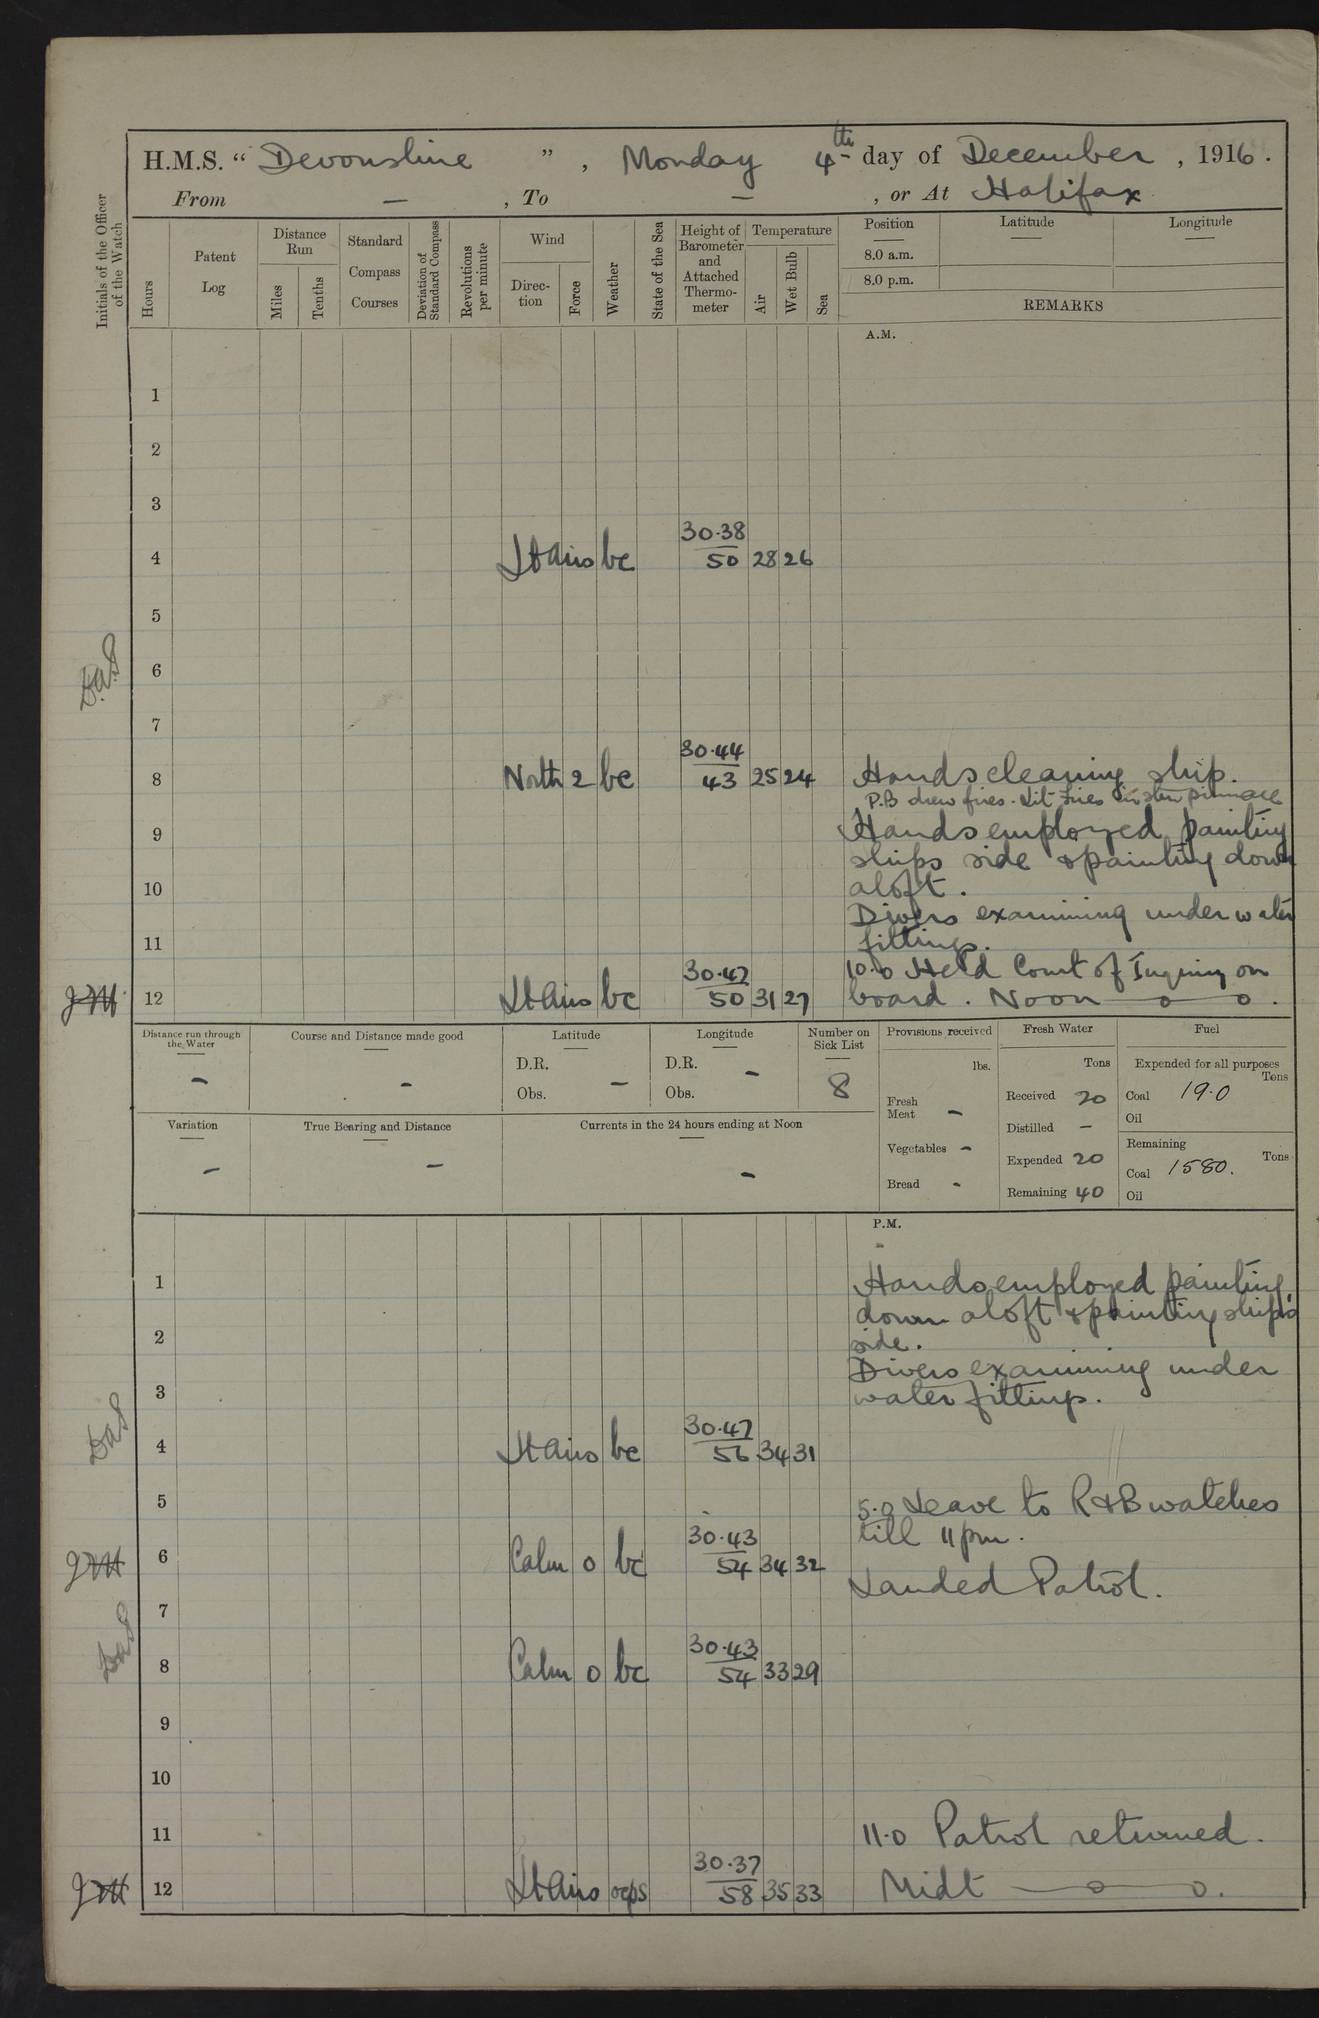 H.M.S. " Devonshire " , Monday 4th day of December , 1916 .
From — , To — , or At Halifax
Initials of the Officer of the Watch
Hours
Patent Log
Distance Run
Miles
Tenths
Standard Compass Courses
Deviation of Standard Compass
Revolutions per minute
Wind
Direction
Force
Weather
State of the Sea
Height of Barometer and Attached Thermometer
Temperature
Air
Wet Bulb
Sea
Position
Latitude
Longitude
8.0 a.m.
8.0 p.m.
REMARKS
A.M.
1
2
3
4 Lt Airs bc 30.38 50 28 26
5
6
7
8 North 2 bc 30.44 43 25 24 Hands cleaning ship.
P.B drew fires. Lit fires in stm pinnace
9 Hands employed painting
ships side & painting down
10 aloft.
Divers examining under water
11 fittings.
10.0 Held Court of Inquiry on
12 Lt Airs bc 30.47 50 31 27 board. Noon
Distance run through the Water —
Course and Distance made good —
Latitude D.R. Obs. —
Longitude D.R. Obs. —
Number on Sick List 8
Provisions received lbs.
Fresh Meat —
Vegetables —
Bread -
Fresh Water Tons
Received 20
Distilled —
Expended 20
Remaining 40
Fuel
Expended for all purposes Tons
Coal 19.0
Oil
Remaining Tons
Coal 1580.
Oil
Variation —
True Bearing and Distance —
Currents in the 24 hours ending at Noon —
P.M.
1 Hands employed painting
down aloft & painting ship's
2 side.
Divers examining under
3 water fittings.
4 Lt Airs bc 30.47 56 34 31
5 5.0 Leave to R&B watches
till 11 pm.
6 Calm 0 bc 30.43 54 34 32
Landed Patrol.
7
8 Calm 0 bc 30.43 54 33 29
9
10
11 11.0 Patrol returned.
12 Lt Airs ocps 30.37 58 35 33 Midt